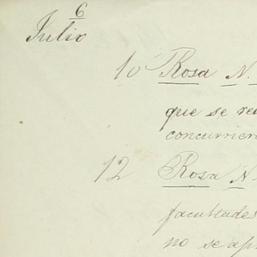 6
Julio
10 Rosa N.
que se re
concurrier
12 Rosa N.
facultades
no se ap